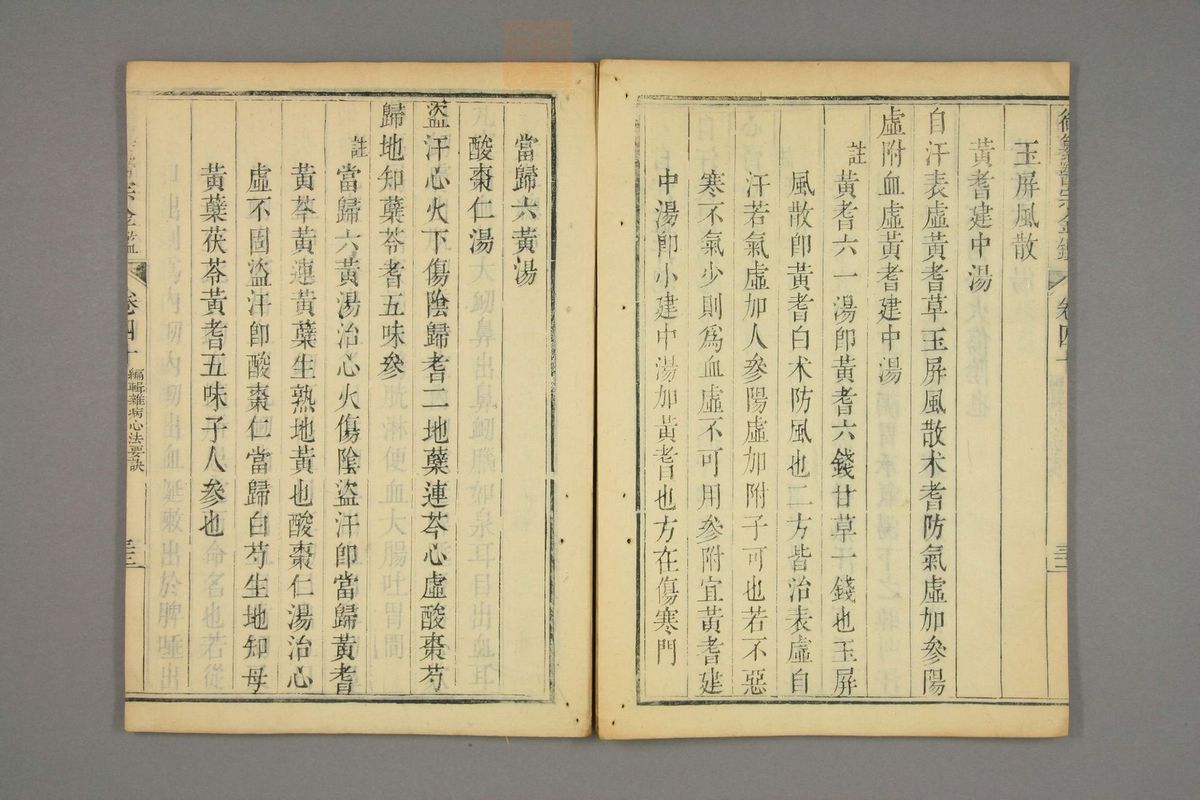 御纂醫宗金鑑 卷四十
玉屏風散
黃耆建中湯
自汗表虛黃耆草玉屏風散术耆防氣虛加參陽
虛附血虛黃耆建中湯
註黃耆六一湯卽黃耆六錢甘草一錢也玉屏
風散卽黃耆白术防風也二方皆治表虛自
汗若氣虛加人參陽虛加附子可也若不惡
寒不氣少則爲血虛不可用參附宜黃耆建
中湯卽小建中湯加黃耆也方在傷寒門
當歸六黃湯
酸棗仁湯
盜汗心火下傷陰歸耆二地蘗連芩心虛酸棗芍
歸地知蘗苓耆五味參
註當歸六黃湯治心火傷陰盜汗卽當歸黃耆
黃芩黃連黃蘗生熟地黃也酸棗仁湯治心
虛不固盜汗卽酸棗仁當歸白芍生地知母
黃蘗茯苓黃耆五味子人參也
宗金鑑 卷四十 編輯雜病心法要訣